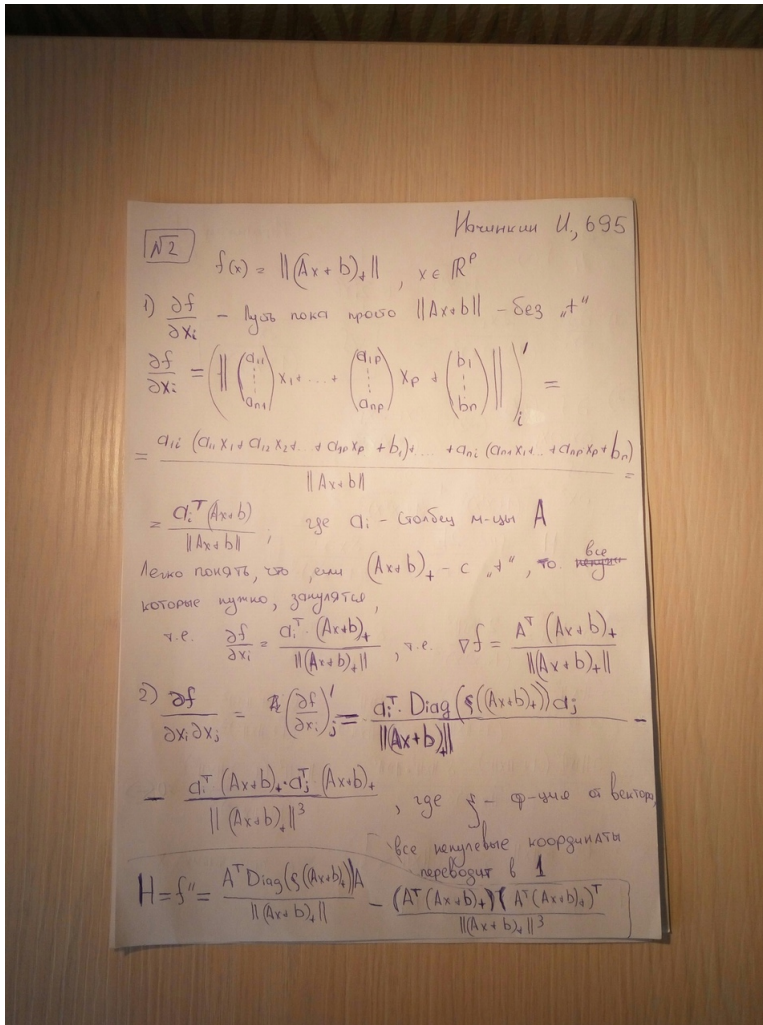 Начинкин И., 695
№2
f(x) = ||(Ax+b)₊||, x ∈ ℝᵖ
1) ∂f/∂xᵢ – Пусть пока просто ||Ax+b|| – без „+“
∂f/∂xᵢ = (||(a₁₁ ⋮ aₙ₁) x₁ + ... + (a₁ₚ ⋮ aₙₚ) xₚ + (b₁ ⋮ bₙ)||)'ᵢ =
= (a₁ᵢ (a₁₁x₁ + a₁₂x₂ + ... + a₁ₚxₚ + b₁) + ... + aₙᵢ (aₙ₁x₁ + ... + aₙₚxₚ + bₙ)) / ||Ax+b|| =
= aᵢᵀ(Ax+b) / ||Ax+b||, где aᵢ – столбец м-цы A
Легко понять, что, если (Ax+b)₊ – с „+“, то все
которые нужно, занулятся,
т.е. ∂f/∂xᵢ = aᵢᵀ·(Ax+b)₊ / ||(Ax+b)₊||, т.е. ∇f = Aᵀ(Ax+b)₊ / ||(Ax+b)₊||
2) ∂f/∂xᵢ∂xⱼ = (∂f/∂xᵢ)'ⱼ = aᵢᵀ·Diag(ξ((Ax+b)₊))aⱼ / ||(Ax+b)₊|| –
– aᵢᵀ(Ax+b)₊·aⱼᵀ(Ax+b)₊ / ||(Ax+b)₊||³, где ξ – ф-ция от вектора,
все ненулевые координаты
переводит в 1
H = f'' = AᵀDiag(ξ((Ax+b)₊))A / ||(Ax+b)₊|| – (Aᵀ(Ax+b)₊)(Aᵀ(Ax+b)₊)ᵀ / ||(Ax+b)₊||³